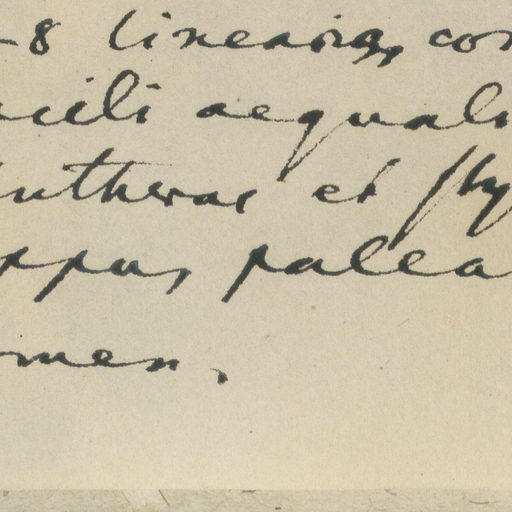 -8 linearia, cor
acili aequali
antheras et sty
appus, palea
men,